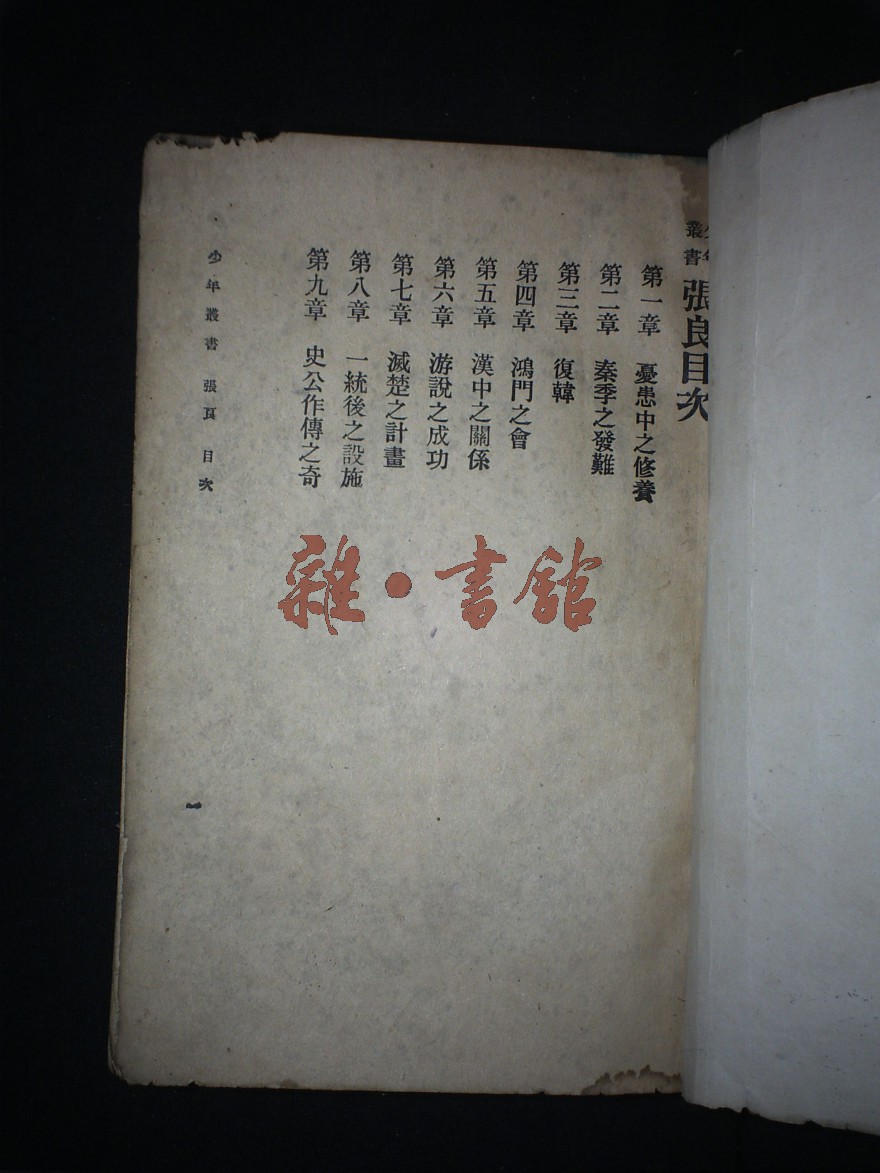 少年叢書 張良目次
第一章 憂患中之修養
第二章 秦季之發難
第三章 復韓
第四章 鴻門之會
第五章 漢中之關係
第六章 游說之成功
第七章 滅楚之計畫
第八章 一統後之設施
第九章 史公作傳之奇
少年叢書 張良 目次
一
雜·書館